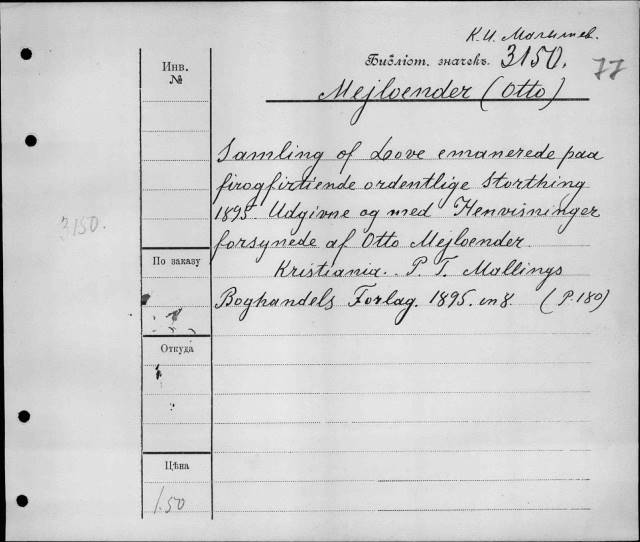 К. И. Малышев.
Библіот. значекъ. 3150.
77
Инв.
№
Mejloender (Otto)
Samling of Love emanerede paa
firogfirtiende ordentlige Storthing
1895. Udgivne og med Henvisninger
3150.
forsynede af Otto Mejloender.
По заказу
Kristiania. P. T. Mallings
Boghandels Forlag. 1895. in 8. (P. 180)
Откуда
Цѣна
1.50